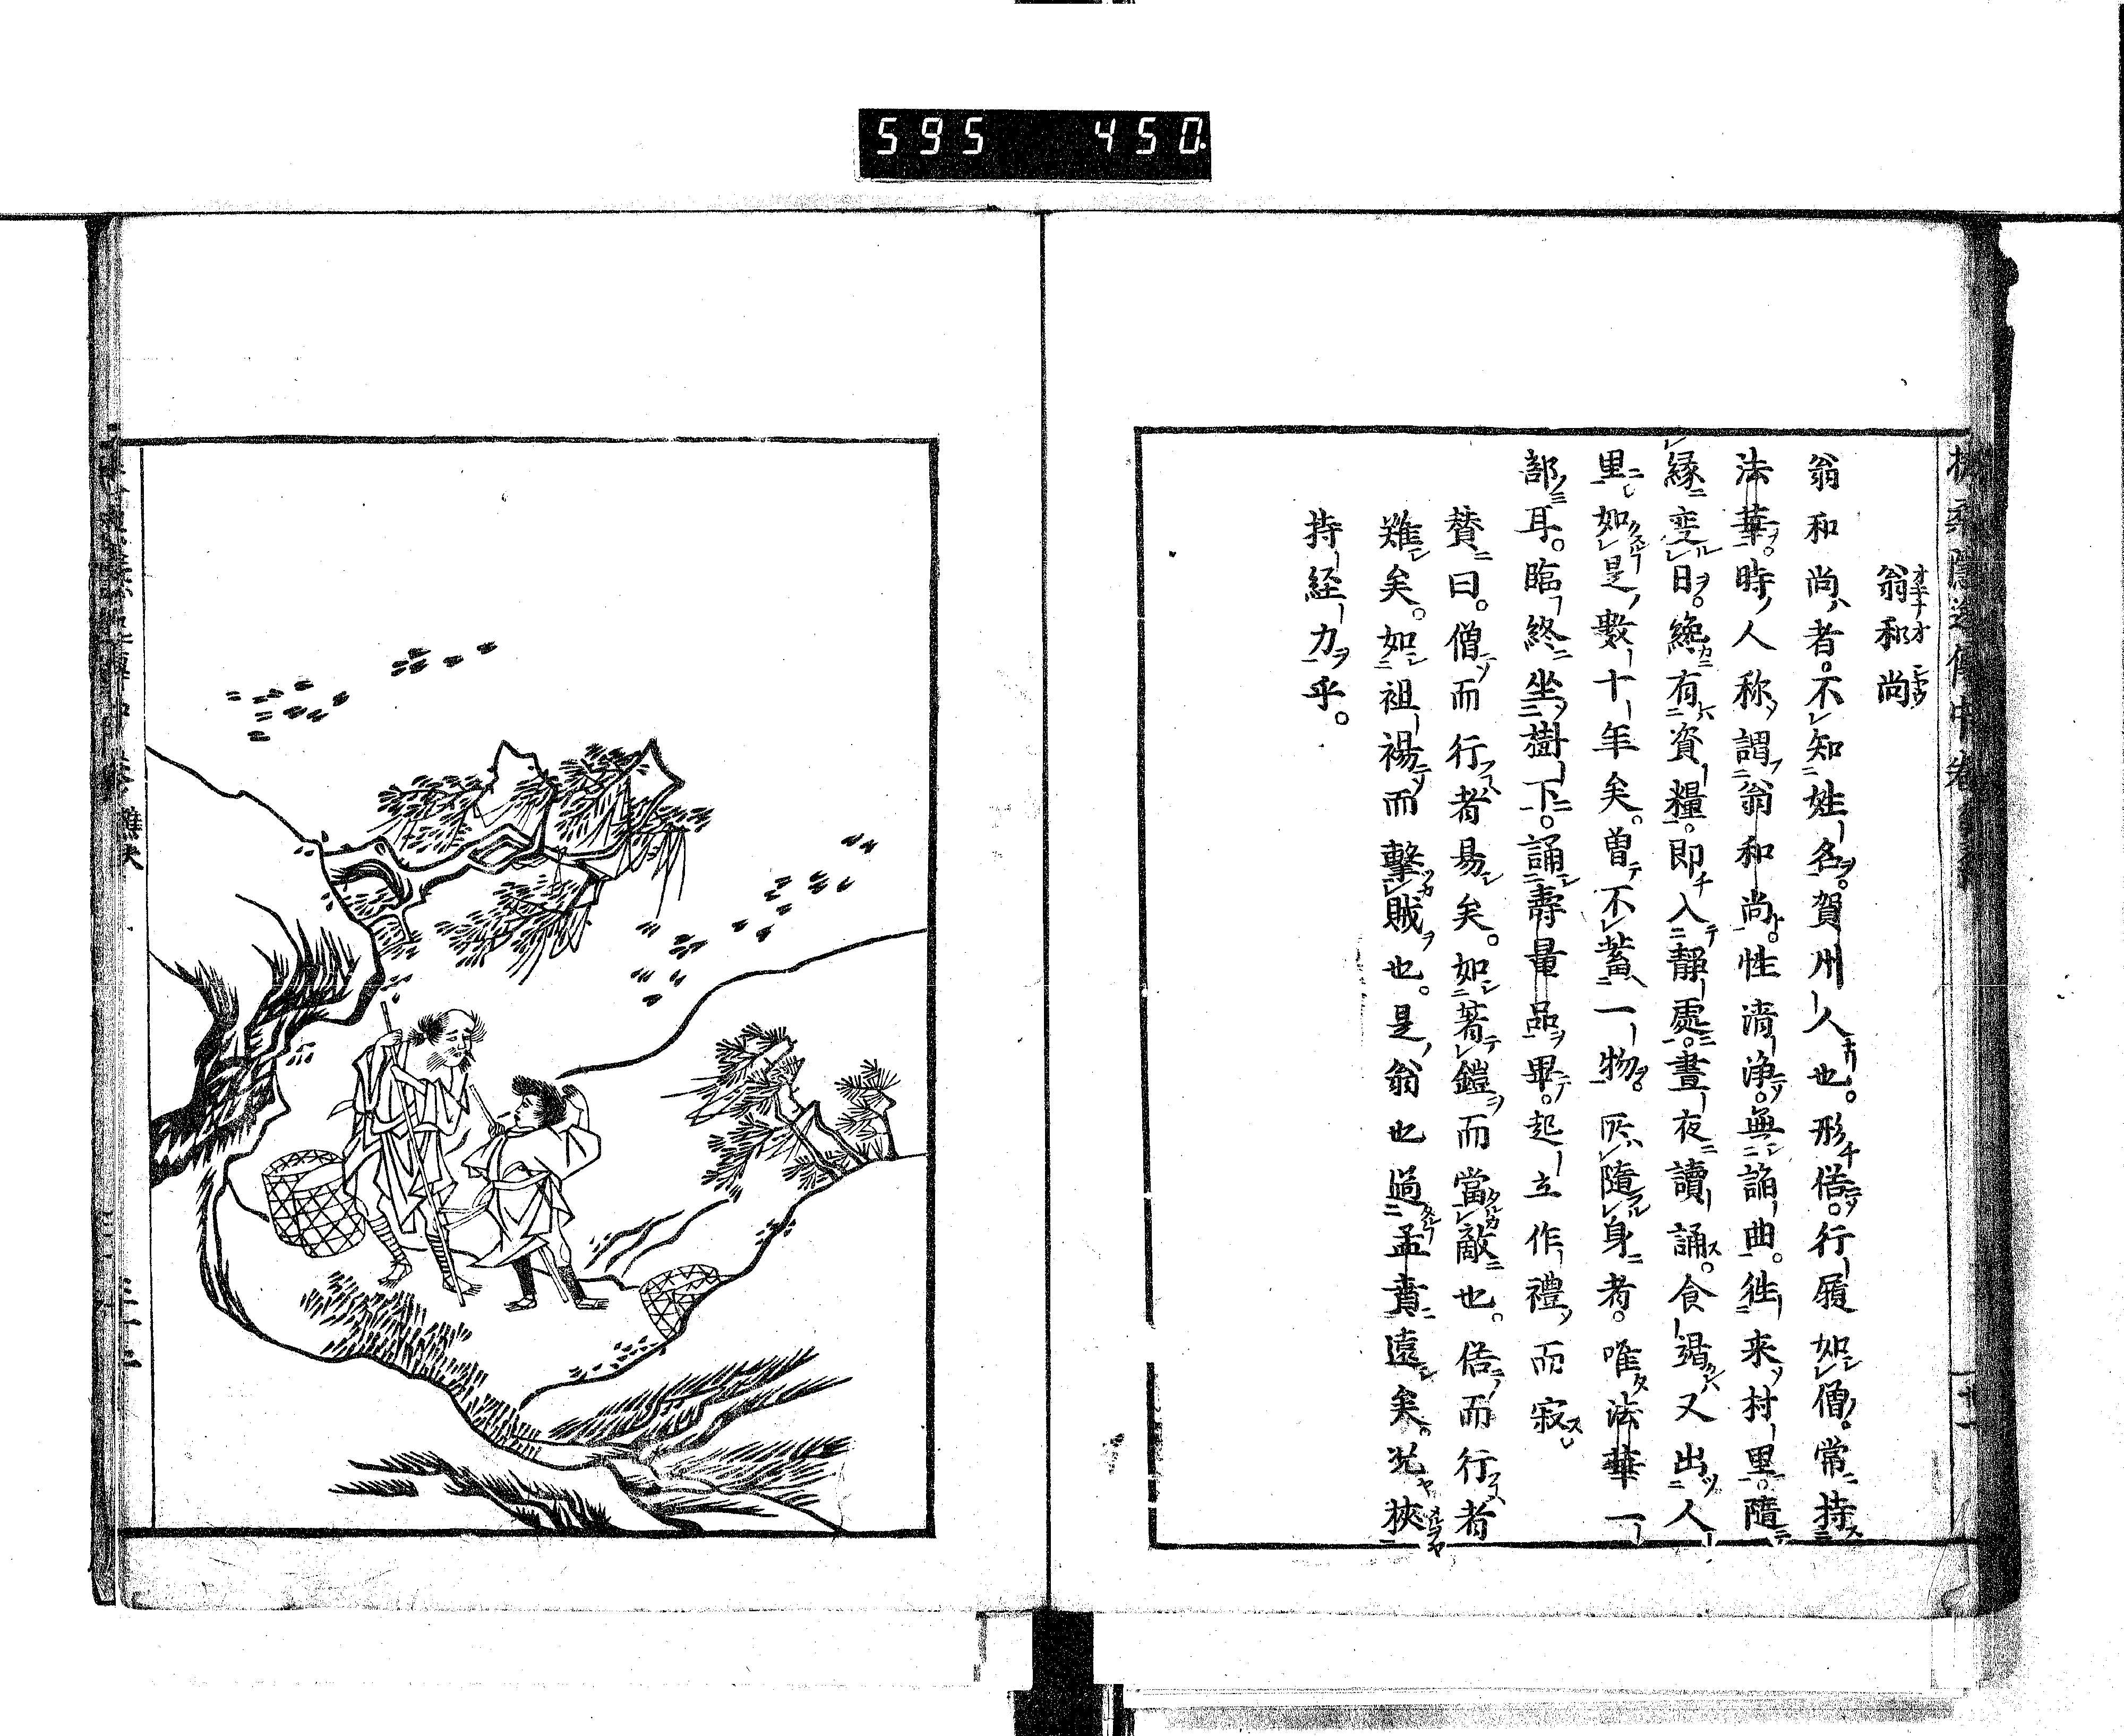 595 450
翁和尚
翁和尚者。不知姓名。賀州人也。形俗。行履如僧。常持
法華。時人称謂翁和尚。性清浄。無諂曲。往来村里。隨
縁变日。纔有資糧。即入静處。晝夜讀誦。食竭又出人
里。如是數十年矣。曽不蓄一物。所隨身者。唯法華一
部耳。臨終坐樹下。誦壽量品畢。起立作禮而寂
賛曰。僧而行者易矣。如著鎧而當敵也。俗而行者
難矣。如袒裼而擊賊也。是翁也過孟賁遠矣。况挾
持経力乎。